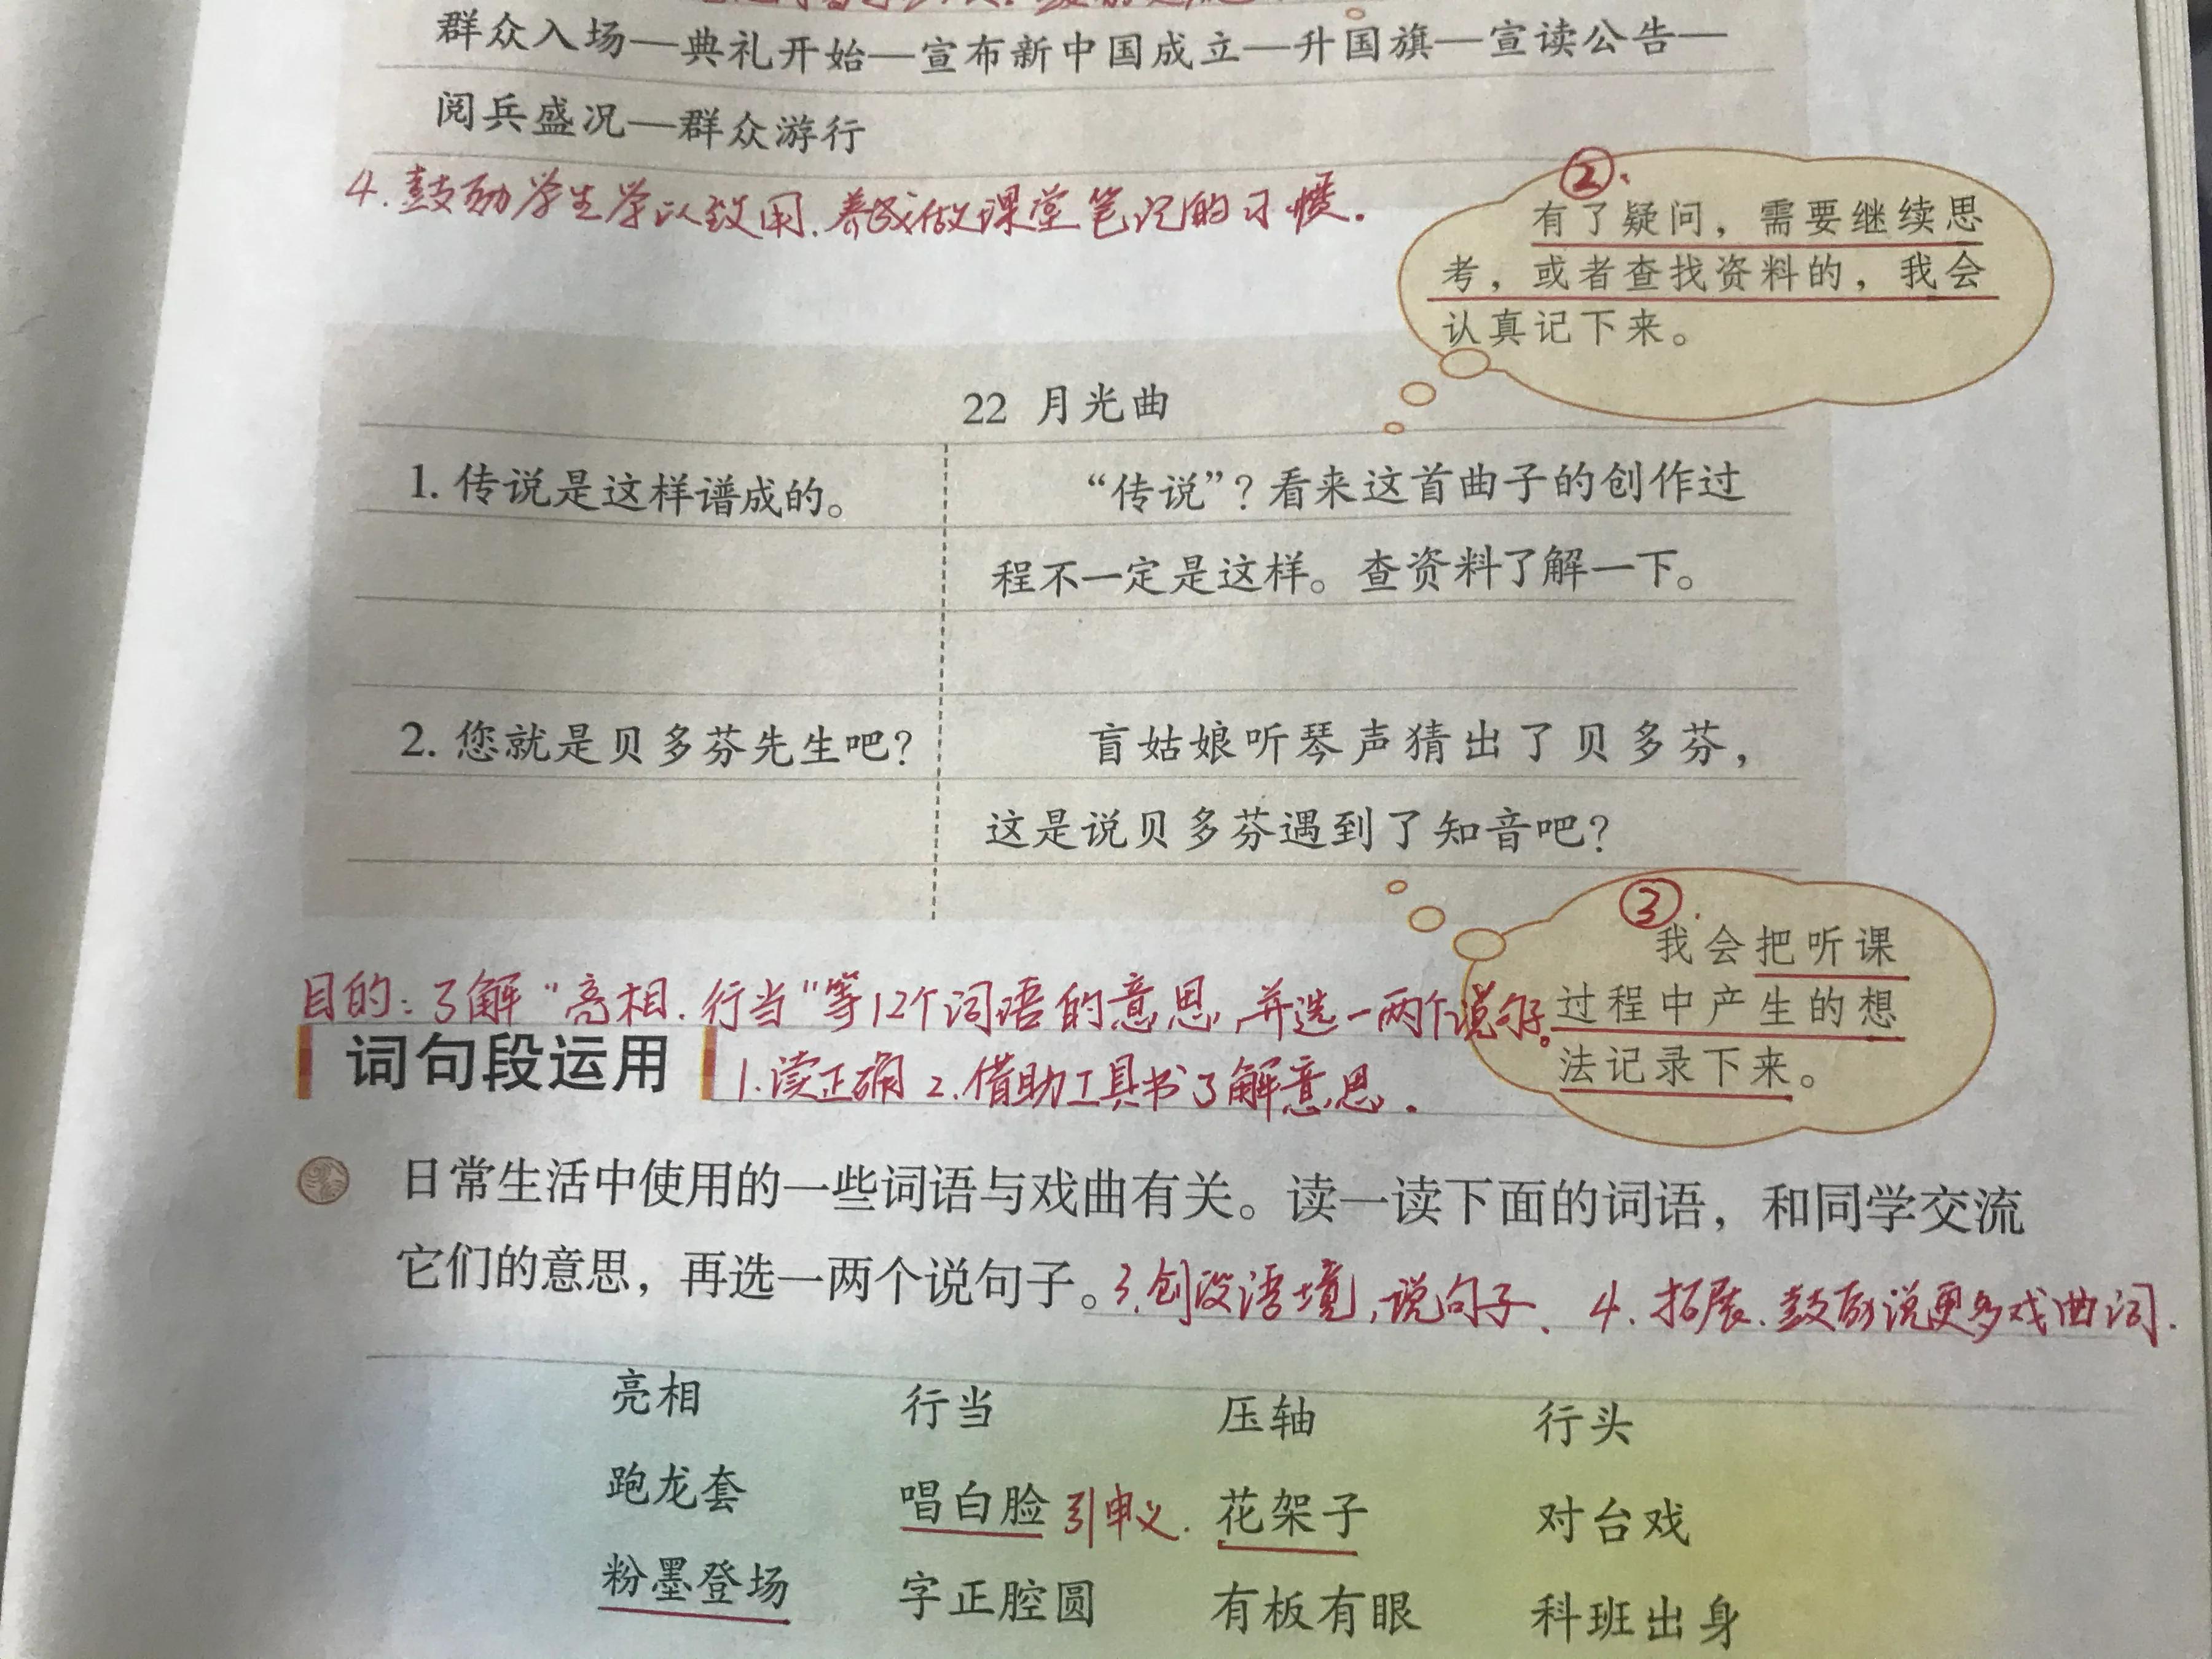 群众入场—典礼开始—宣布新中国成立—升国旗—宣读公告—
阅兵盛况—群众游行
4.鼓励学生学以致用.养成做课堂笔记的习惯.
②.
有了疑问，需要继续思
考，或者查找资料的，我会
认真记下来。
22 月光曲
1. 传说是这样谱成的。
“传说”？看来这首曲子的创作过
程不一定是这样。查资料了解一下。
2. 您就是贝多芬先生吧？
盲姑娘听琴声猜出了贝多芬，
这是说贝多芬遇到了知音吧？
③.
我会把听课
过程中产生的想
法记录下来。
目的：了解“亮相.行当”等12个词语的意思,并选一两个说句子。
词句段运用
1.读正确 2.借助工具书了解意思.
日常生活中使用的一些词语与戏曲有关。读一读下面的词语，和同学交流
它们的意思，再选一两个说句子。
3.创设语境,说句子、4.拓展.鼓励说更多戏曲词.
亮相 行当 压轴 行头
跑龙套 唱白脸 引申义. 花架子 对台戏
粉墨登场 字正腔圆 有板有眼 科班出身